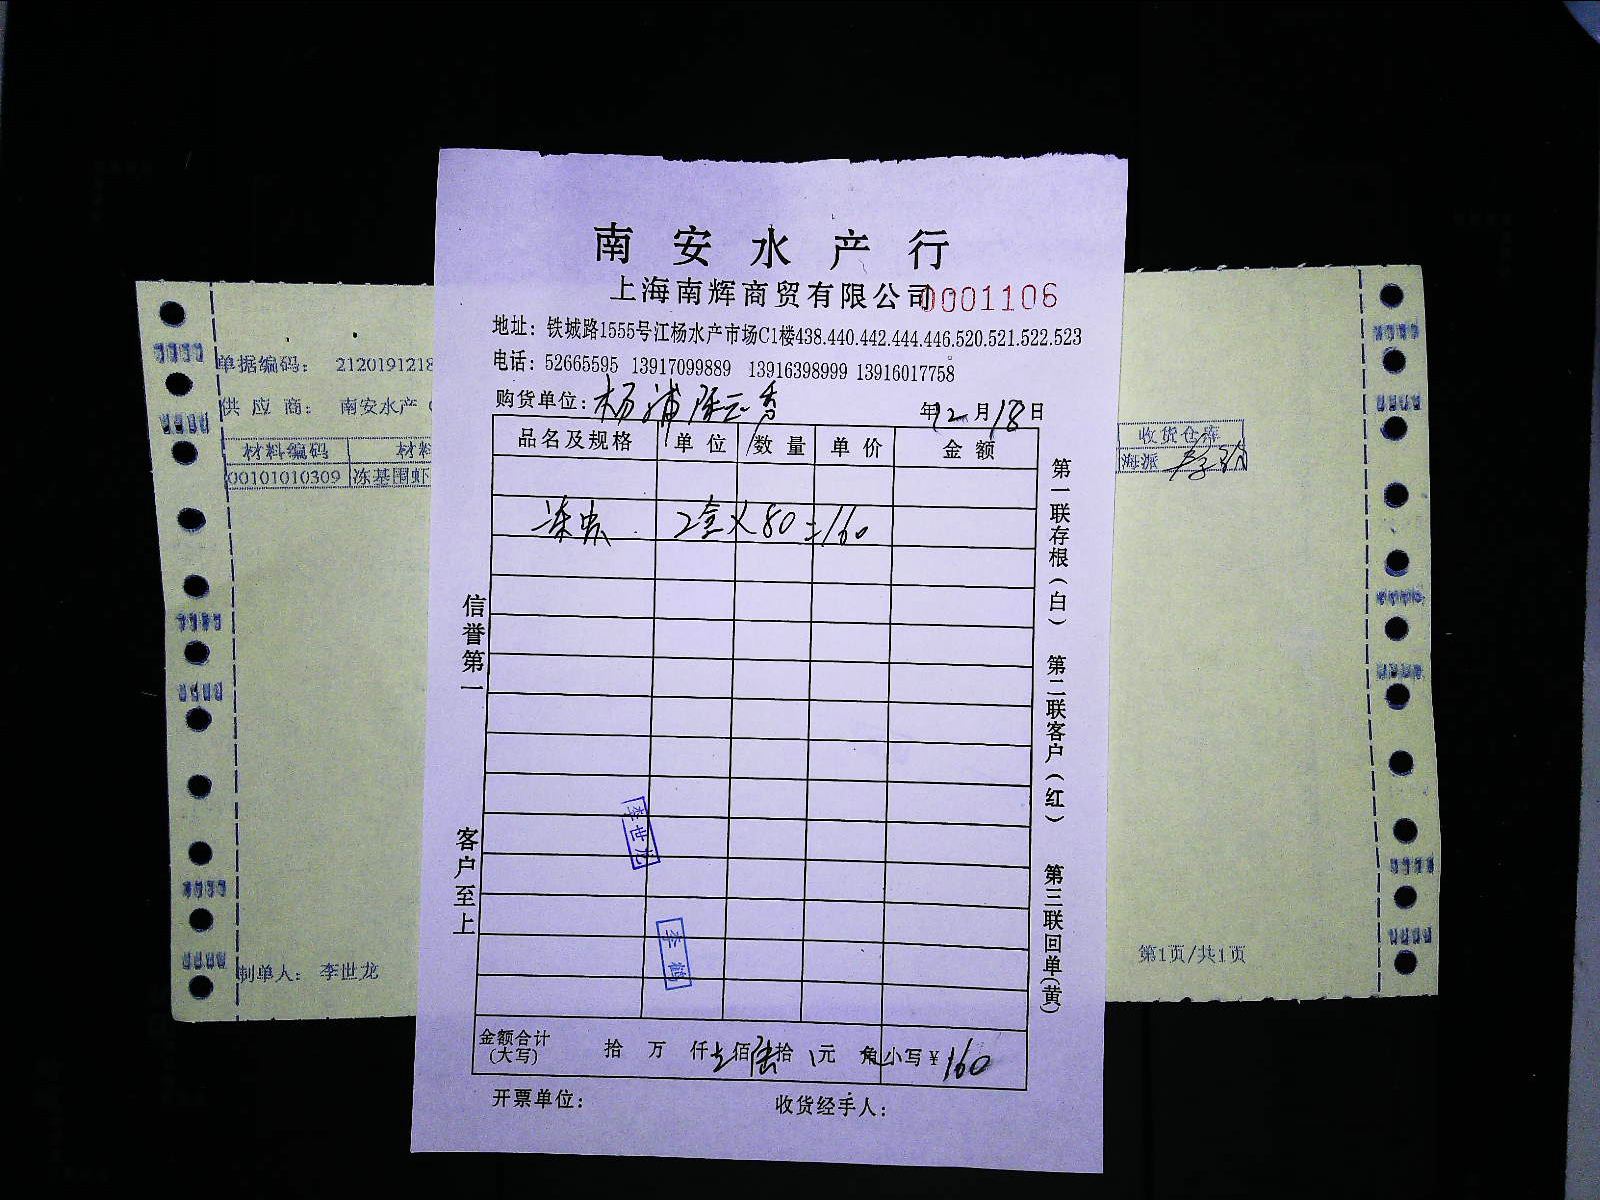 南安水产行
上海南辉商贸有限公司 0001106
地址：铁城路1555号江杨水产市场C1楼438.440.442.444.446.520.521.522.523
电话：52665595 13917099889 13916398999 13916017758
购货单位：杨浦 年12月18日
品名及规格 单位 数量 单价 金额
冻 2盒×80=160
信誉第一
客户至上
李世龙
李鹤
第一联存根（白） 第二联客户（红） 第三联回单（黄）
金额合计（大写） 拾 万 仟 佰陆拾 元 角 小写￥160
开票单位： 收货经手人：
单据编码： 2120191218
供应商： 南安水产
材料编码 材料
00101010309 冻基围虾
制单人： 李世龙
收货仓库
海派
第1页/共1页